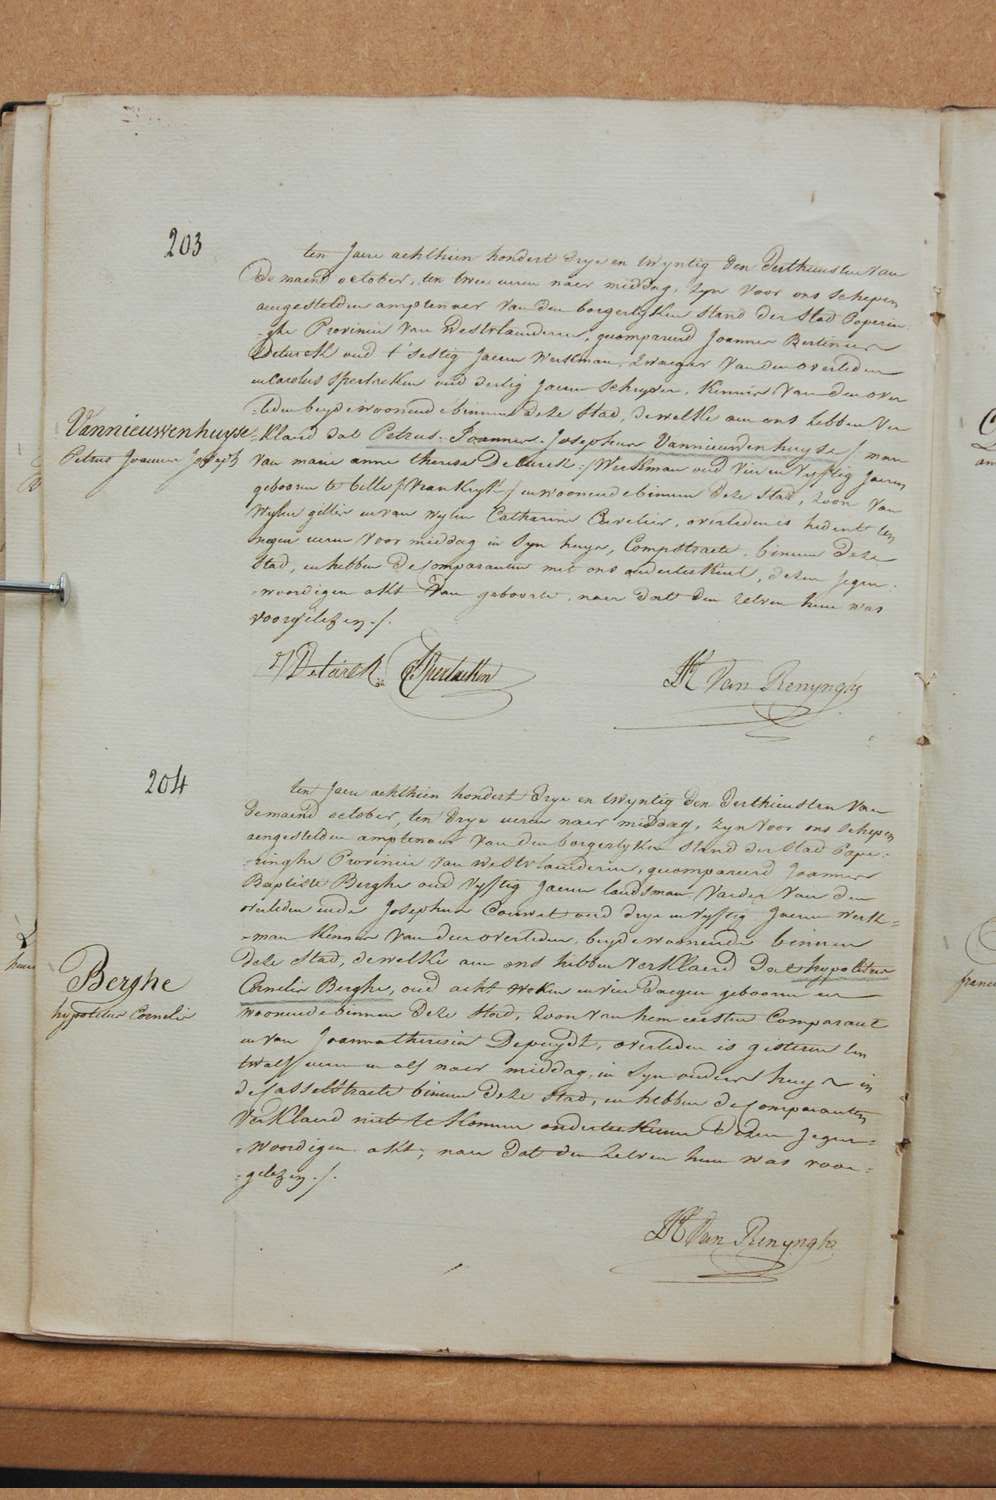 203
ten Jaere achthien hondert drye en twyntig den derthiensten van
de maend october, ten twee uren naer middag, Zyn voor ons schepen
aengestelden amptenaer van den borgerlyken stand der stad Poperin-
-ghe Provincie van Westvlanderen, gecompareerd Joannes Bertenier
Deturck oud t'sestig Jaeren Werkman, Zwaeger van den overleden
en Carolus Spertaelken oud dertig Jaeren Schryver, Kennis van den over
-leden beyde woonende binnen deze stad, de welke aen ons hebben ver
-klaerd dat Petrus Joannes Josephus Vannieuwenhuyse /: man
van marie anne theresa Deturck :/ Werkman oud vier en vyftig Jaeren
gebooren te belle /: Vrankryk :/ en woonende binnen deze stad, zoon van
wylen gillis en van wylen Catharina Cuvelier, overleden is hedent ten
negen uren voor middag in Zyn huys, Compstraete, binnen deze
stad, en hebben de Comparanten met ons onderteekent, dezen jegen-
-woordigen akt van geboorte, naer dat den zelven hun was
voorgelezen ./.
Vannieuwenhuyse
Petrus Joannes Joseph
Deturck Spertaelken
Van Renynghe
204
ten Jaere achthien hondert drye en twyntig den derthiensten van
de maend october, ten drye uren naer middag, Zyn voor ons schepen
aengestelden amptenaer van den borgerlyken stand der stad Pope-
-ringhe Provincie van Westvlanderen, gecompareerd Joannes
Baptiste Berghe oud vyftig Jaeren landsman, Vaeder van den
overleden ende Josephus Couwet oud drye en vyftig Jaeren werk-
-man Kennis van den overleden, beyde woonende binnen
deze stad, de welke aen ons hebben verklaerd dat hypolitus
Cornelis Berghe, oud acht weken en vier daegen gebooren en
woonende binnen deze stad, zoon van hem eersten Comparant
en van Joanna theresia Depuydt, overleden is gisteren ten
twalf uren en alf naer middag, in Zyn ouders huys in
de Casselstraete binnen deze stad, en hebben de Comparanten
verklaerd niet te konnen onderteekenen dezen jegen-
-woordigen akt, naer dat den zelven hun was voor-
-gelezen ./.
Berghe
hypolitus Cornelis
Van Renynghe